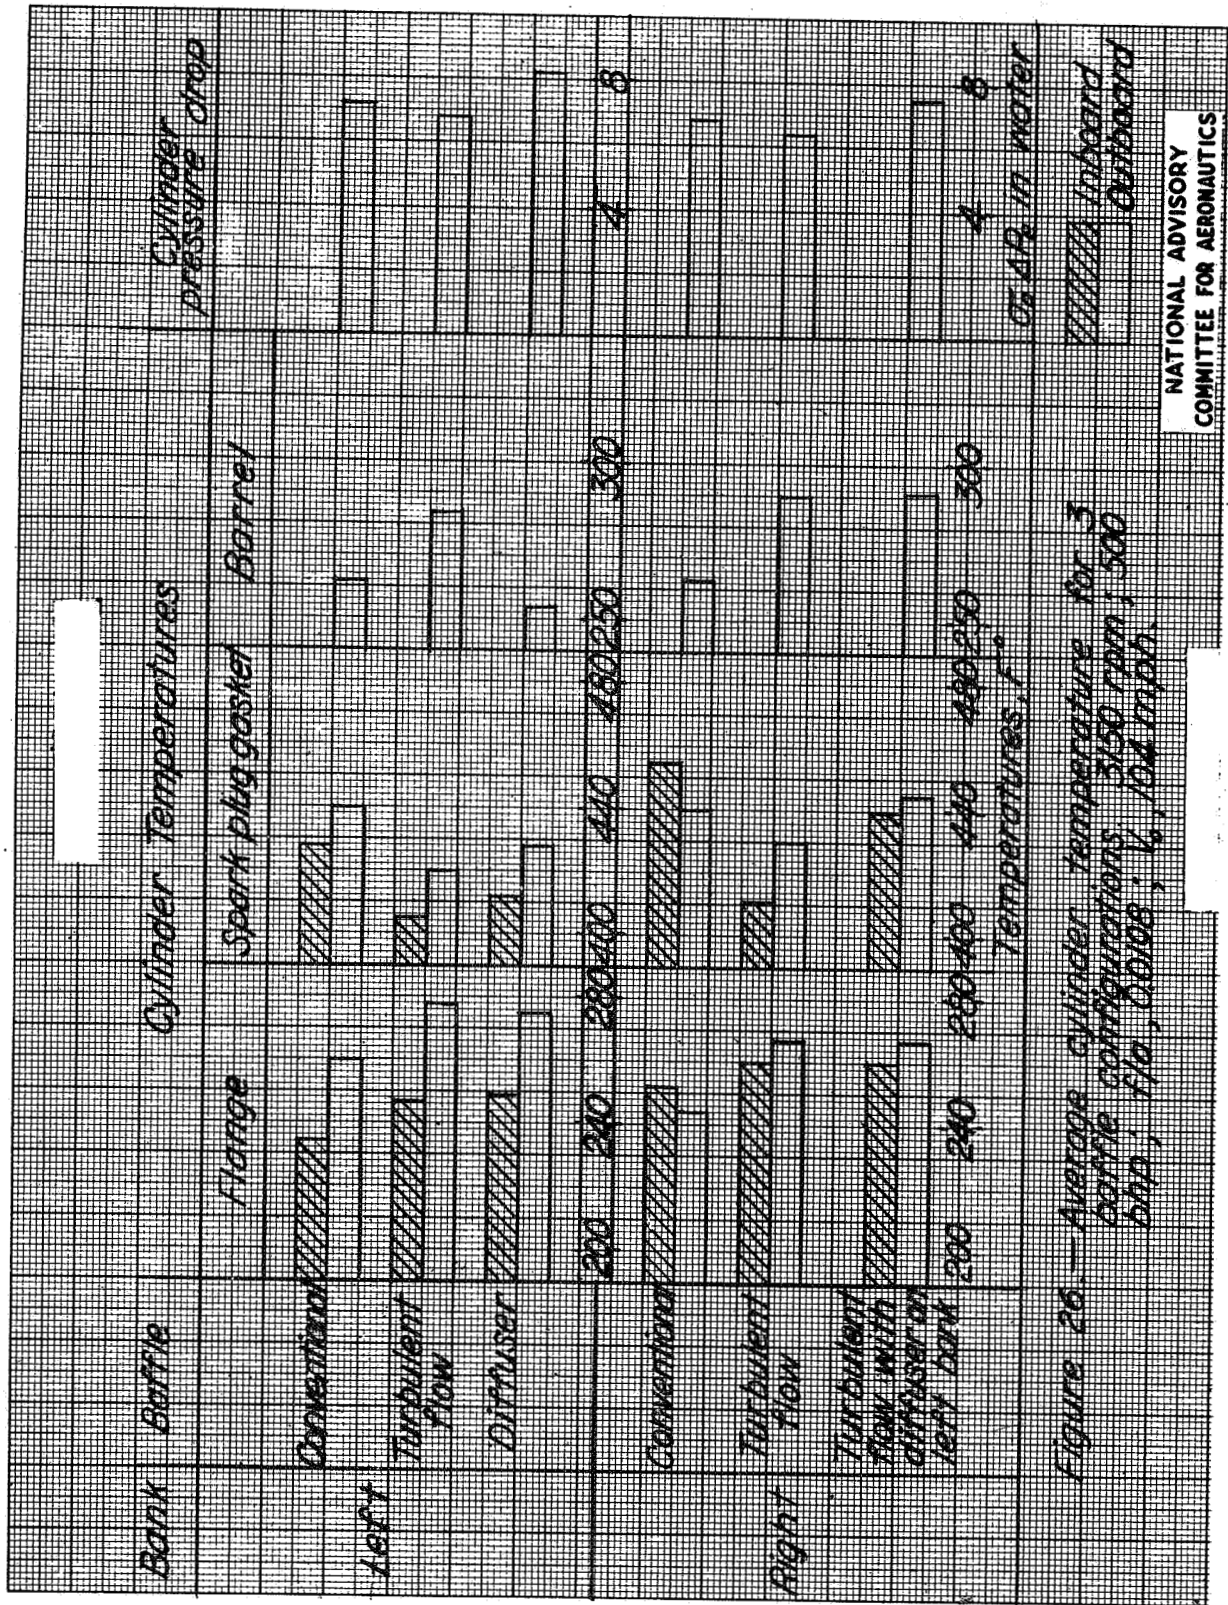 Bank Baffle Cylinder Temperatures Cylinder
pressure drop
Flange Spark plug gasket Barrel
Left
Conventional
Turbulent
flow
Diffuser
200 240 280 400 440 480 250 300 4 8
Right
Conventional
Turbulent
flow
Turbulent
flow with
diffuser on
left bank
200 240 280 400 440 480 250 300 4 8
Temperatures, F° σ₀ΔP, in water
Inboard
Outboard
Figure 26.—Average cylinder temperature for 3
baffle configurations. 3150 rpm; 500
bhp; f/a, 0.0108; V₀, 104 mph.
NATIONAL ADVISORY
COMMITTEE FOR AERONAUTICS